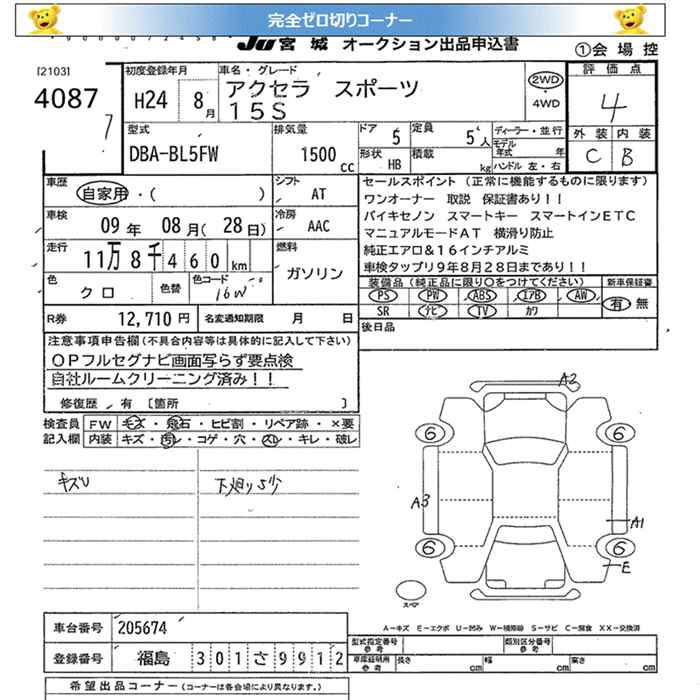 完全ゼロ切りコーナー
JU 宮城 オークション出品申込書
①会場控
[2103]
4087
初度登録年月
H24 8月
車名・グレード
アクセラ スポーツ
15S
2WD
・4WD
評価点
4
外装 内装
C B
型式
DBA-BL5FW
排気量
1500cc
ドア 5
定員 5人
ディーラー・並行
モデル年式 年
形状 HB
積載 kg
ハンドル 左・右
車歴 自家用・( )
シフト AT
車検 09年 08月(28日)
冷房 AAC
走行 11万8千460km
燃料 ガソリン
色 クロ
色替
色コード
R券 12,710円
名変通知期限 月 日
セールスポイント (正常に機能するものに限ります)
ワンオーナー 取説 保証書あり!!
バイキセノン スマートキー スマートインETC
マニュアルモードAT 横滑り防止
純正エアロ&16インチアルミ
車検タップリ9年8月28日まであり!!
装備品(純正品に限り○をつけてください)
新車保証書
PS PW ABS エアB AW
SR ナビ TV カワ
有・無
後日品
注意事項申告欄(不具合内容等は具体的に記入して下さい)
OPフルセグナビ画面写らず要点検
自社ルームクリーニング済み!!
修復歴・有 〔箇所 〕
検査員記入欄
FW キズ・飛石・ヒビ割・リペア跡・×要
内装 キズ・汚レ・コゲ・穴・スレ・キレ・破レ
キズU
下廻りS少
A2
6 6
A3
A1
6 6
E
スペア
A−キズ E−エクボ U−凹み W−補修跡 S−サビ C−腐食 XX−交換済
車台番号 205674
登録番号 福島 301さ9912
型式指定番号 参考
類別区分番号 参考
車庫証明用 参考
長さ cm
幅 cm
高さ cm
希望出品コーナー(コーナーは各会場により異なります。)